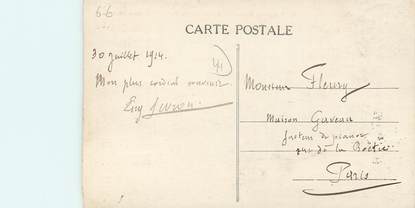 66
CARTE POSTALE
30 juillet 1914.
Mon plus cordial souvenir.
Monsieur Fleury
Maison Gaveau
facteur de pianos
rue de la Boëtie
Paris